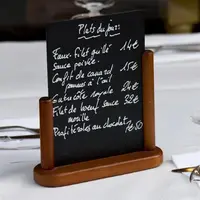 Plats du jour:
Faux filet grillé 14€
Sauce poivrée.
Confit de canard 15€
pommes à l'ail
Entrecôte royale 24€
Filet de boeuf sauce 22€
morille
Profitéroles au chocolat 7€50